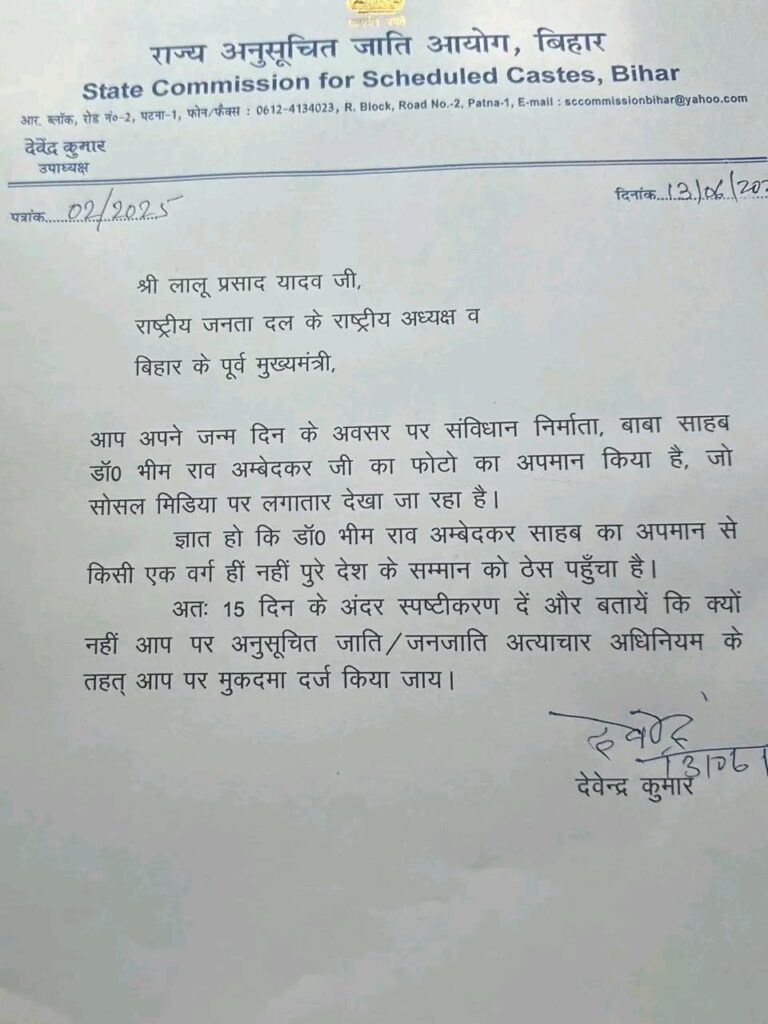 राज्य अनुसूचित जाति आयोग, बिहार
State Commission for Scheduled Castes, Bihar
आर. ब्लॉक, रोड नं०-2, पटना-1, फोन/फैक्स : 0612-4134023, R. Block, Road No.-2, Patna-1, E-mail : sccommissionbihar@yahoo.com
देवेंद्र कुमार
उपाध्यक्ष
पत्रांक 02/2025
दिनांक 13/06/202
श्री लालू प्रसाद यादव जी,
राष्ट्रीय जनता दल के राष्ट्रीय अध्यक्ष व
बिहार के पूर्व मुख्यमंत्री,
आप अपने जन्म दिन के अवसर पर संविधान निर्माता, बाबा साहब
डॉ0 भीम राव अम्बेदकर जी का फोटो का अपमान किया है, जो
सोसल मिडिया पर लगातार देखा जा रहा है।
ज्ञात हो कि डॉ0 भीम राव अम्बेदकर साहब का अपमान से
किसी एक वर्ग हीं नहीं पुरे देश के सम्मान को ठेस पहुँचा है।
अतः 15 दिन के अंदर स्पष्टीकरण दें और बतायें कि क्यों
नहीं आप पर अनुसूचित जाति/जनजाति अत्याचार अधिनियम के
तहत् आप पर मुकदमा दर्ज किया जाय।
13/06/
देवेन्द्र कुमार